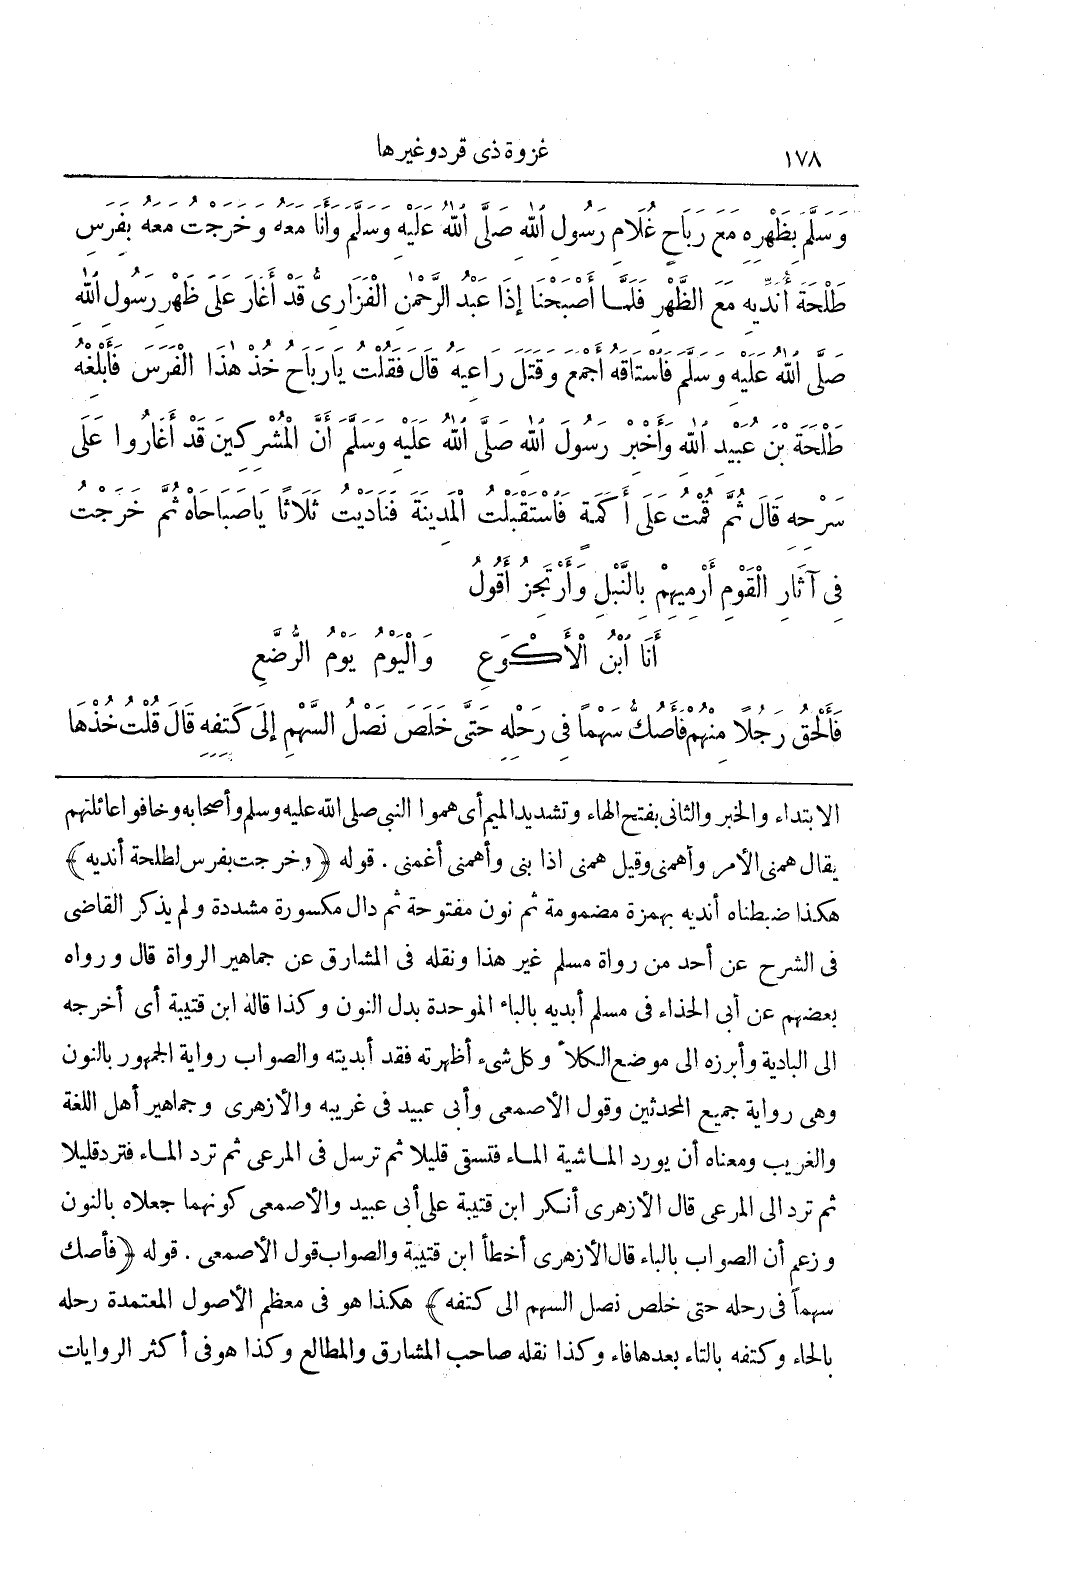 ١٧٨ غزوة ذى قرد وغيرها
وَسَلَّمَ بِظَهْرِهِ مَعَ رَبَاحٍ غُلَامِ رَسُولِ اللهِ صَلَّى اللهُ عَلَيْهِ وَسَلَّمَ وَأَنَا مَعَهُ وَخَرَجْتُ مَعَهُ بِفَرَسِ
طَلْحَةَ أُنَدِّيهِ مَعَ الظَّهْرِ فَلَمَّا أَصْبَحْنَا إِذَا عَبْدُ الرَّحْمٰنِ الْفَزَارِىُّ قَدْ أَغَارَ عَلَى ظَهْرِ رَسُولِ اللهِ
صَلَّى اللهُ عَلَيْهِ وَسَلَّمَ فَاسْتَاقَهُ أَجْمَعَ وَقَتَلَ رَاعِيَهُ قَالَ فَقُلْتُ يَارَبَاحُ خُذْ هٰذَا الْفَرَسَ فَأَبْلِغْهُ
طَلْحَةَ بْنَ عُبَيْدِ اللهِ وَأَخْبِرْ رَسُولَ اللهِ صَلَّى اللهُ عَلَيْهِ وَسَلَّمَ أَنَّ الْمُشْرِكِينَ قَدْ أَغَارُوا عَلَى
سَرْحِهِ قَالَ ثُمَّ قُمْتُ عَلَى أَكَمَةٍ فَاسْتَقْبَلْتُ الْمَدِينَةَ فَنَادَيْتُ ثَلَاثًا يَاصَبَاحَاهْ ثُمَّ خَرَجْتُ
فِى آثَارِ الْقَوْمِ أَرْمِيهِمْ بِالنَّبْلِ وَأَرْتَجِزُ أَقُولُ
أَنَا ابْنُ الْأَكْوَعِ وَالْيَوْمُ يَوْمُ الرُّضَّعِ
فَأَلْحَقُ رَجُلًا مِنْهُمْ فَأَصُكُّ سَهْمًا فِى رَحْلِهِ حَتَّى خَلَصَ نَصْلُ السَّهْمِ إِلَى كَتِفِهِ قَالَ قُلْتُ خُذْهَا
الابتداء والخبر والثانى بفتح الهاء وتشديد الميم أى هموا النبى صلى الله عليه وسلم وأصحابه وخافوا غائلتهم
يقال همنى الأمر وأهمنى وقيل همنى اذا بنى وأهمنى أغمنى . قوله ﴿وخرجت بفرس لطلحة أنديه﴾
هكذا ضبطناه أنديه بهمزة مضمومة ثم نون مفتوحة ثم دال مكسورة مشددة ولم يذكر القاضى
فى الشرح عن أحد من رواة مسلم غير هذا ونقله فى المشارق عن جماهير الرواة قال ورواه
بعضهم عن أبى الحذاء فى مسلم أبديه بالباء الموحدة بدل النون وكذا قاله ابن قتيبة أى أخرجه
الى البادية وأبرزه الى موضع الكلأ وكل شىء أظهرته فقد أبديته والصواب رواية الجمهور بالنون
وهى رواية جميع المحدثين وقول الأصمعى وأبى عبيد فى غريبه والأزهرى وجماهير أهل اللغة
والغريب ومعناه أن يورد الماشية الماء فتسقى قليلا ثم ترسل فى المرعى ثم ترد الماء فترد قليلا
ثم ترد الى المرعى قال الأزهرى أنكر ابن قتيبة على أبى عبيد والأصمعى كونهما جعلاه بالنون
وزعم أن الصواب بالباء قال الأزهرى أخطأ ابن قتيبة والصواب قول الأصمعى . قوله ﴿فأصك
سهماً فى رحله حتى خلص نصل السهم الى كتفه﴾ هكذا هو فى معظم الأصول المعتمدة رحله
بالحاء وكتفه بالتاء بعدها فاء وكذا نقله صاحب المشارق والمطالع وكذا هو فى أكثر الروايات